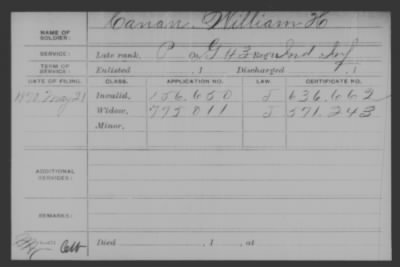 NAME OF SOLDIER: Canan, William H
SERVICE: Late rank, P Co. G 43 Reg't Ind Inf
TERM OF SERVICE: Enlisted , 1 Discharged , 1
DATE OF FILING. CLASS. APPLICATION NO. LAW. CERTIFICATE NO.
1870 May 21 Invalid, 156.650 636.662
Widow, 775 011 571.243
Minor,
ADDITIONAL SERVICES:
REMARKS:
Died , 1 , at